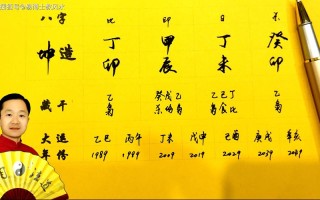 八字 比 印 日 杀
坤造 丁卯 甲辰 丁未 癸卯
藏干 乙 癸戊乙 乙己丁 乙
枭 杀伤枭 枭食比 枭
大运 乙巳 丙午 丁未 戊申 己酉 庚戌 辛亥
年份 1989 1989 2009 2019 2029 2039 2049